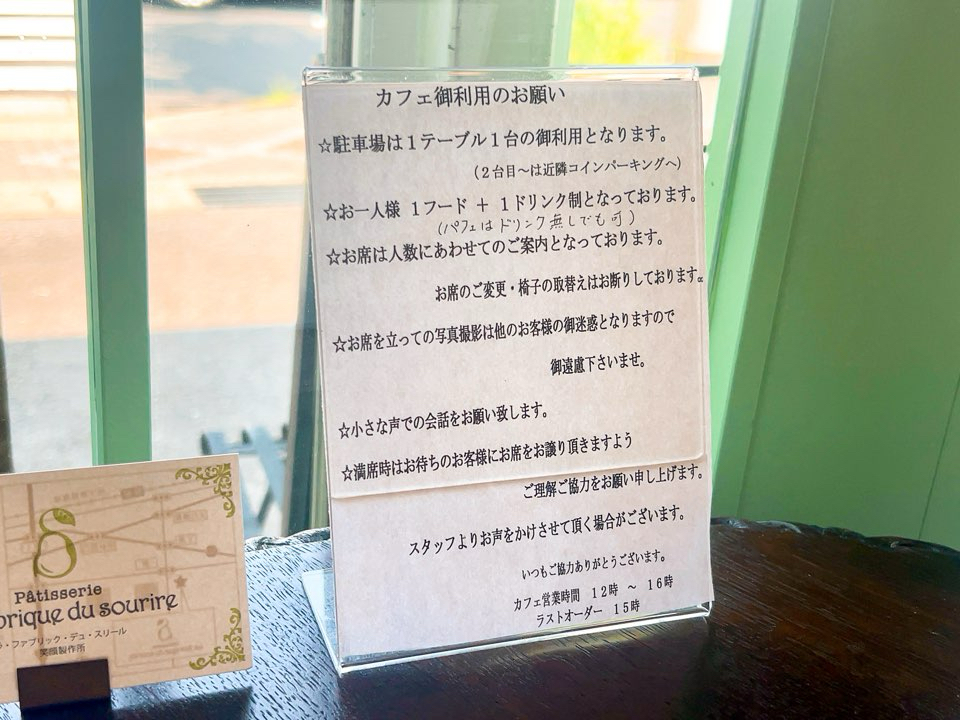 カフェ御利用のお願い
☆駐車場は1テーブル1台の御利用となります。
(2台目～は近隣コインパーキングへ)
☆お一人様 1フード + 1ドリンク制となっております。
(パフェはドリンク無しでも可)
☆お席は人数にあわせてのご案内となっております。
お席のご変更・椅子の取替えはお断りしております。
☆お席を立っての写真撮影は他のお客様の御迷惑となりますので
御遠慮下さいませ。
☆小さな声での会話をお願い致します。
☆満席時はお待ちのお客様にお席をお譲り頂きますよう
ご理解ご協力をお願い申し上げます。
スタッフよりお声をかけさせて頂く場合がございます。
いつもご協力ありがとうございます。
カフェ営業時間 12時 ～ 16時
ラストオーダー 15時
Pâtisserie
brique du sourire
ラ・ファブリック・デュ・スリール
笑顔製作所